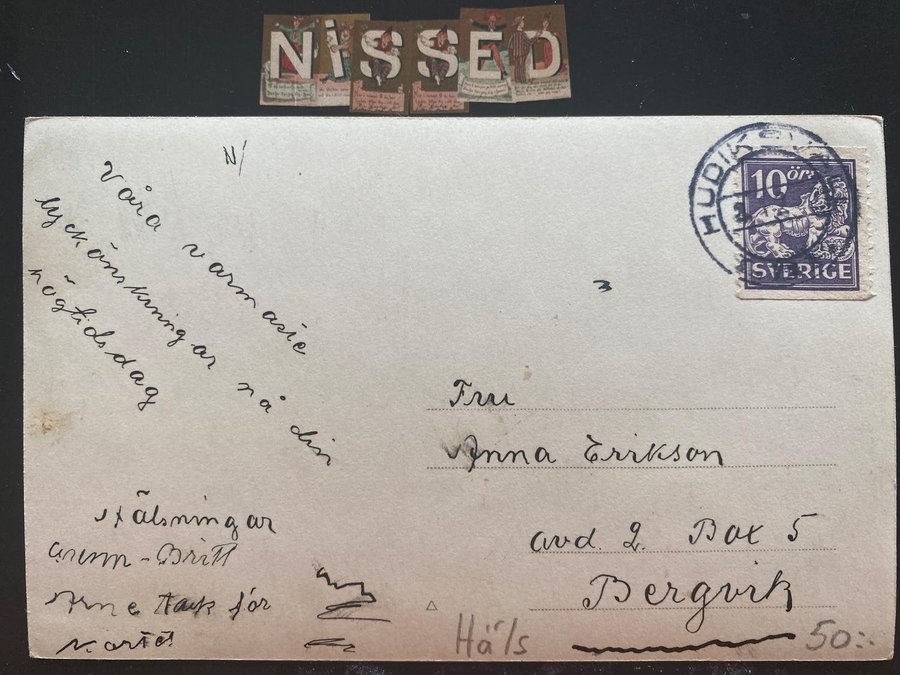 NISSED
N/
Våra varmaste
lyckönskningar på din
högtidsdag
Hälsningar
Gunn-Britt
Arne Tack för
kortet
HUDIKSV
10 öre
SVERIGE
Fru
Anna Erikson
avd. 2. Box 5
Bergvik
Häls
50:-